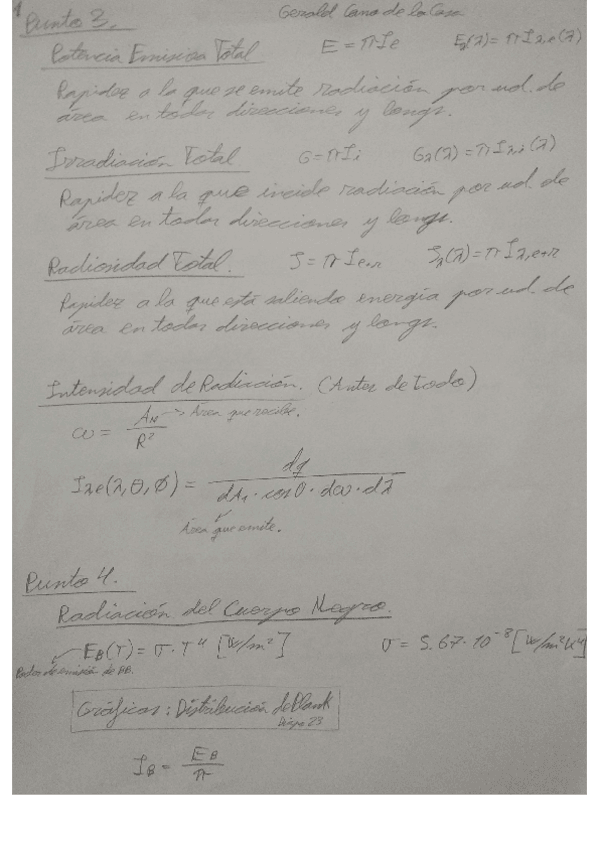 1
Gerald Cano de la Casa
Punto 3.
Potencia Emisiva Total E = πIe Eλ(λ) = πIλ,e(λ)
Rapidez a la que se emite radiación por ud. de
área en todas direcciones y longs.
Irradiación Total G = πIi Gλ(λ) = πIλ,i(λ)
Rapidez a la que incide radiación por ud. de
área en todas direcciones y longs.
Radiosidad Total. J = πIe+r Jλ(λ) = πIλ,e+r
Rapidez a la que está saliendo energía por ud. de
área en todas direcciones y longs.
Intensidad de Radiación. (Antes de todo)
ω = AN / R² → Área que recibe.
Iλe(λ,θ,Φ) = dq / dA1 · cosθ · dω · dλ
Área que emite.
Punto 4.
Radiación del Cuerpo Negro.
EB(T) = σ·T⁴ [W/m²] σ = 5.67·10⁻⁸ [W/m²K⁴]
Poder de emisión de BB.
Gráficas: Distribución de Plank
Diapo 23
IB = EB / π